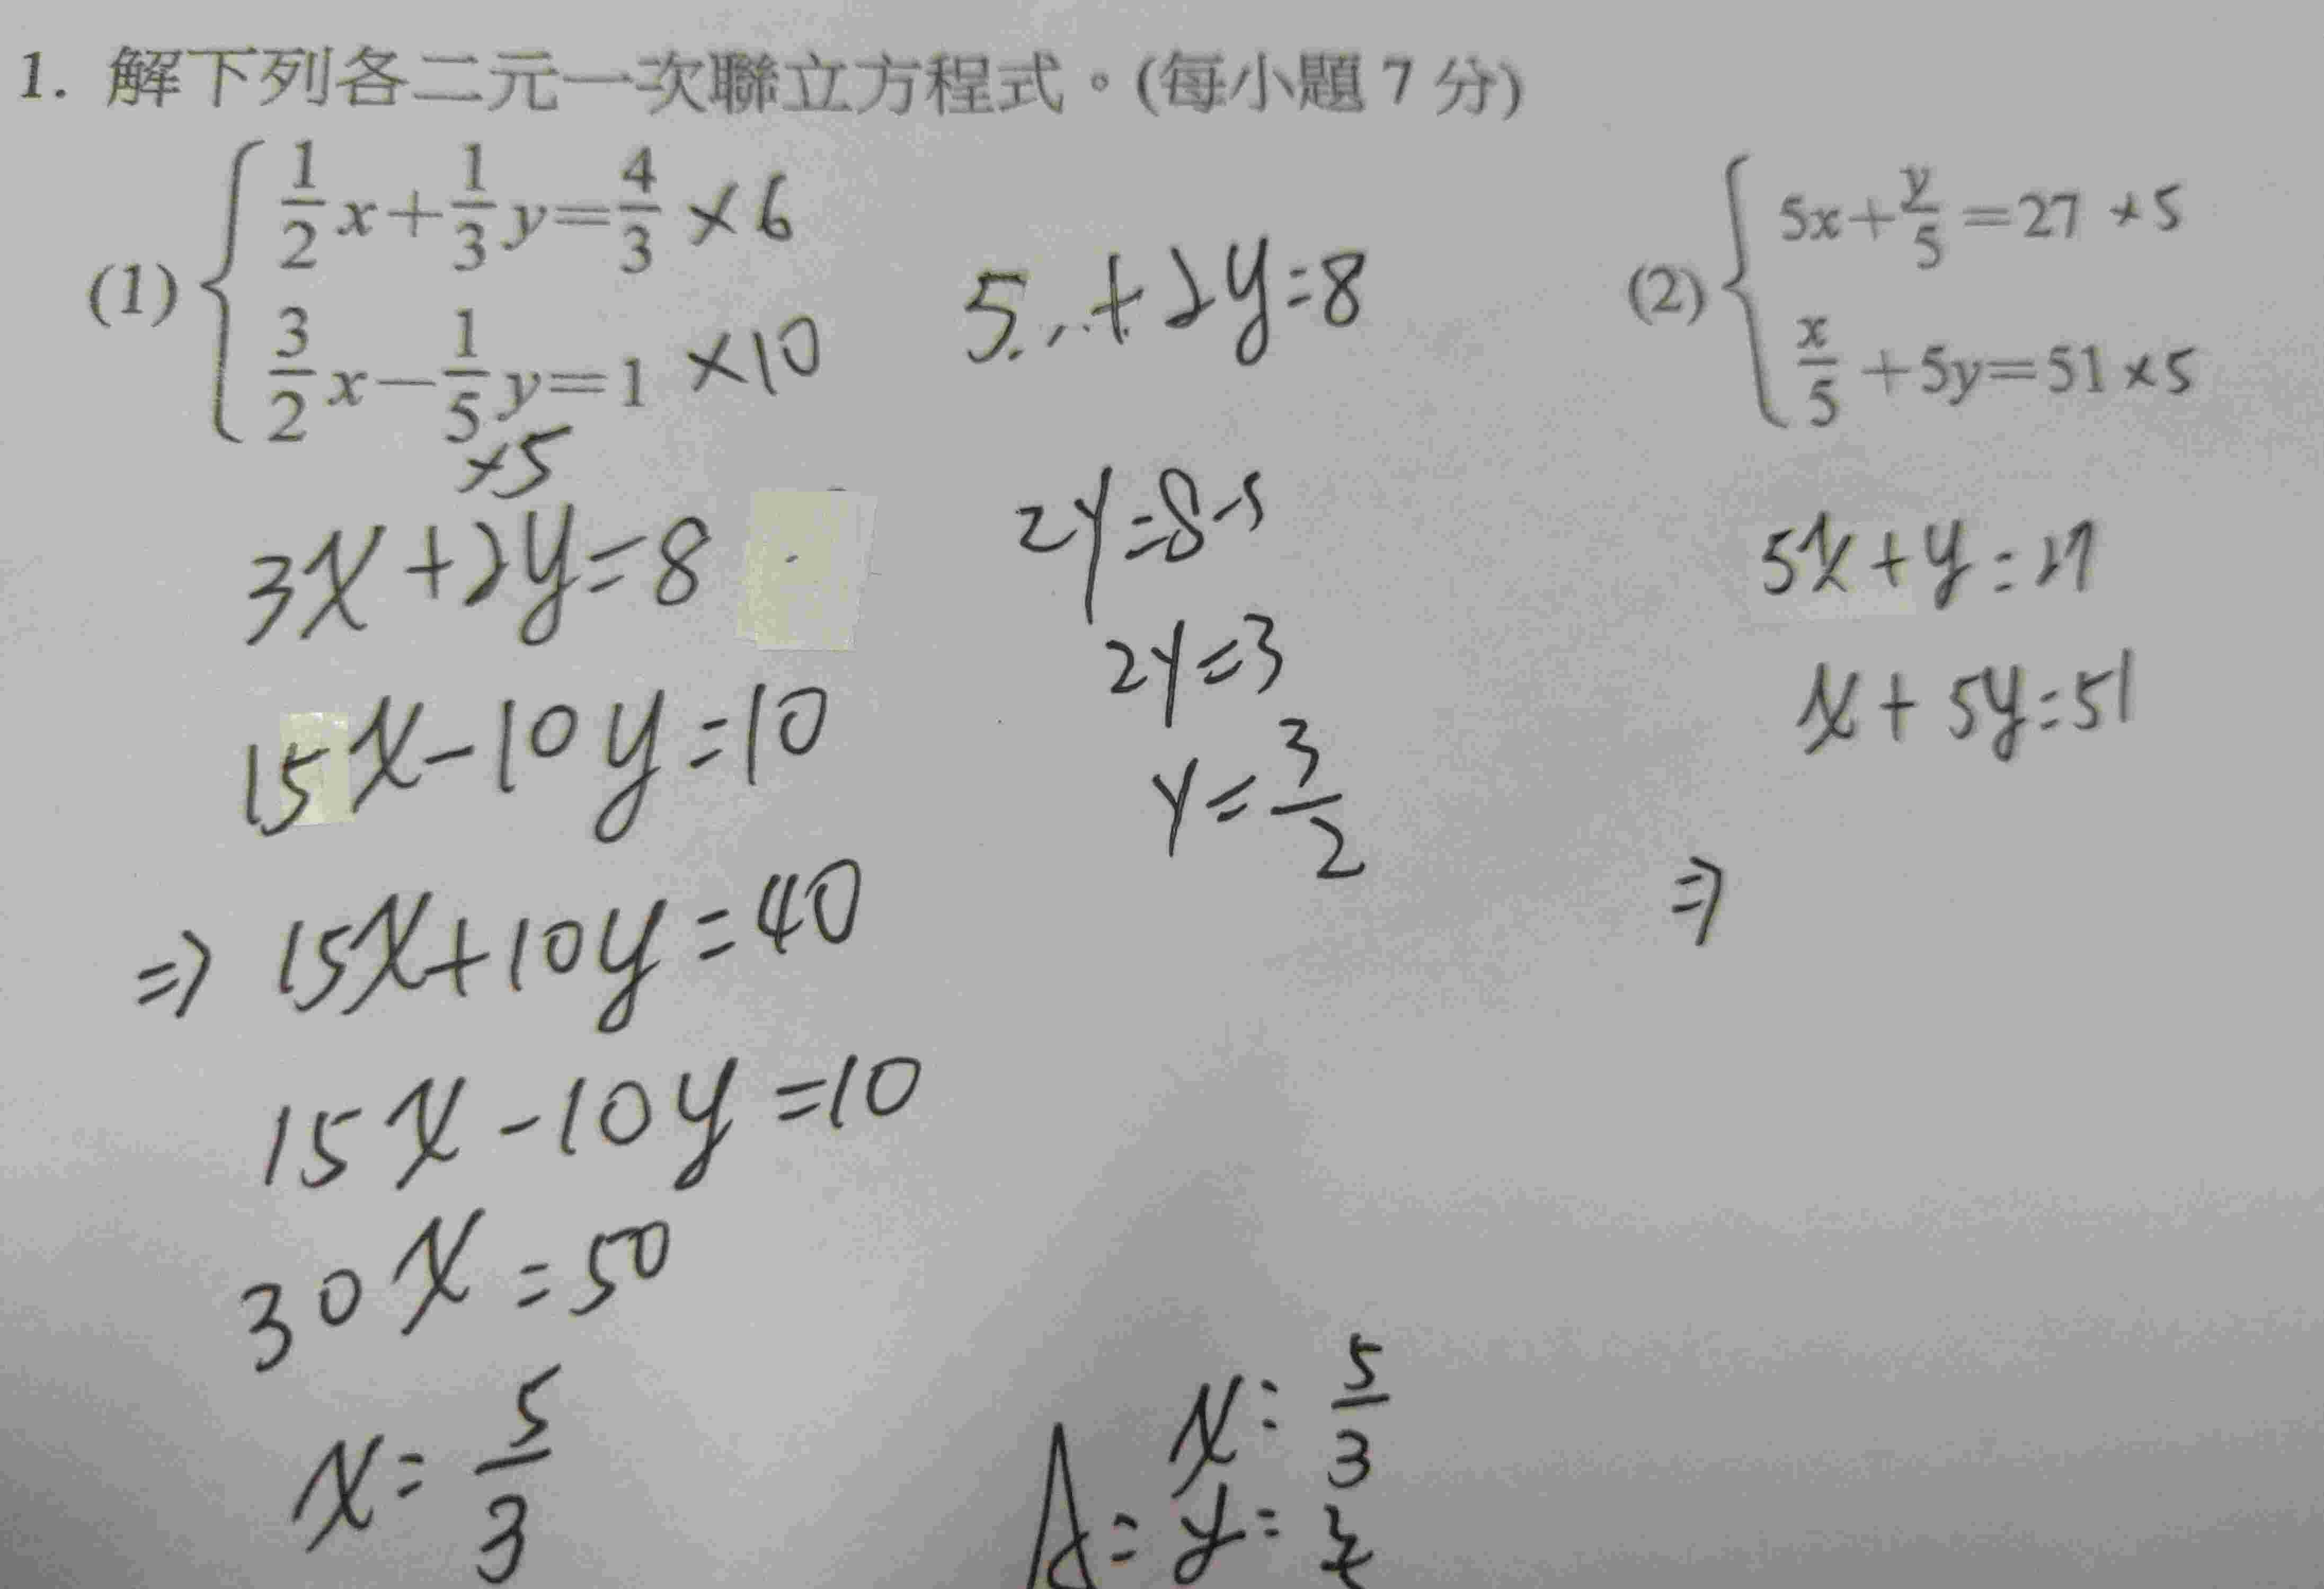 1. 解下列各二元一次聯立方程式。(每小題7分)
(1) { 1/2 x + 1/3 y = 4/3 ×6
3/2 x − 1/5 y = 1 ×10
×5
3x+2y=8
15x-10y=10
⇒ 15x+10y=40
15x-10y=10
30x=50
x=5/3
5 +2y=8
2y=8-5
2y=3
y=3/2
A= x=5/3
y=
(2) { 5x + y/5 = 27 ×5
x/5 + 5y = 51 ×5
5x+y=27
x+5y=51
⇒